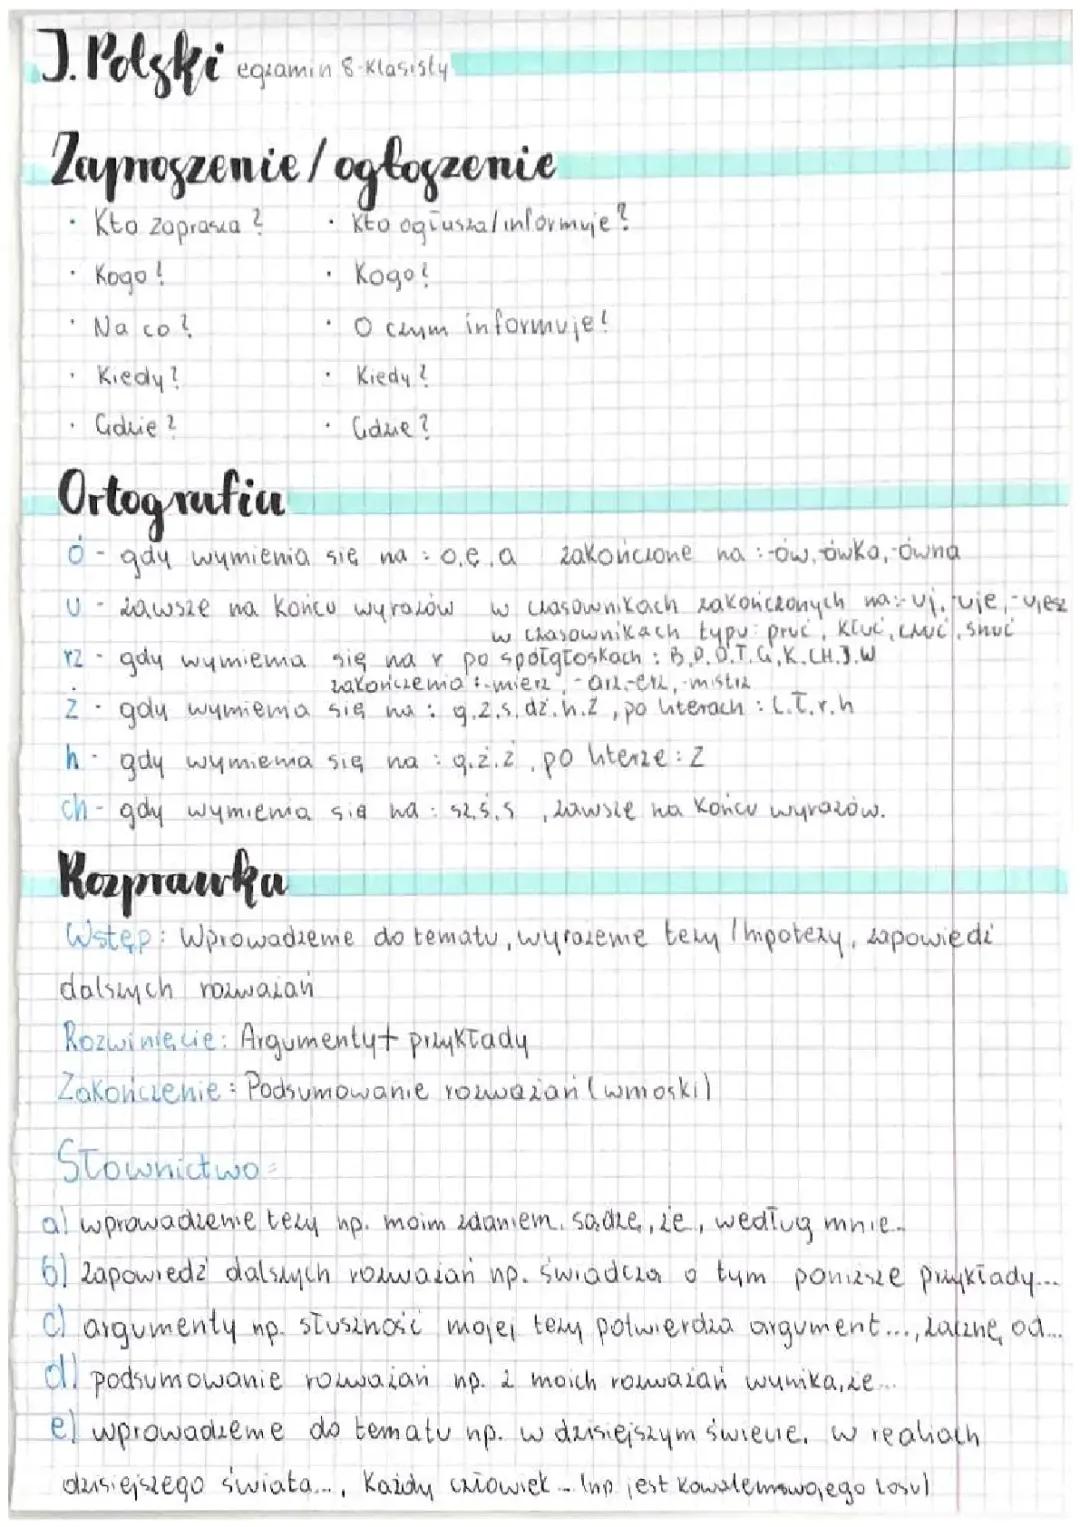 J. Polski egzamin 8-klasisty
Zaproszenie/ogłoszenie
· Kto zaprasza? · Kto ogłusza/informuje?
· Kogo? · Kogo?
· Na co? · O czym informuje?
· Kiedy? · Kiedy?
· Gdzie? · Gdzie?
Ortografia
ó - gdy wymienia się na : o,ę,a zakończone na :-ów,-ówka,-ówna
u - zawsze na końcu wyrazów w czasownikach zakończonych na:-uj,-uje,-ujesz
w czasownikach typu: pruć, kłuć, czuć, snuć
rz - gdy wymienia się na r po spółgłoskach : B,P,D,T,G,K,CH,J,W
zakończenia :-mierz, -arz,-erz,-mistrz
ż - gdy wymienia się na : g,z,s,dź,h,ź, po literach : l,ł,r,h
h - gdy wymienia się na : g,ż,z, po literze : Z
ch - gdy wymienia się na : sz,ś,s, zawsze na końcu wyrazów.
Rozprawka
Wstęp: Wprowadzenie do tematu, wyrażenie tezy / hipotezy, zapowiedź
dalszych rozważań
Rozwinięcie: Argumenty+ przykłady
Zakończenie: Podsumowanie rozważań (wnioski)
Słownictwo:
a) wprowadzenie tezy np. moim zdaniem, sądzę, że, według mnie...
b) zapowiedź dalszych rozważań np. świadczą o tym poniższe przykłady...
c) argumenty np. słuszność mojej tezy potwierdza argument..., zacznę od...
d) podsumowanie rozważań np. z moich rozważań wynika, że...
e) wprowadzenie do tematu np. w dzisiejszym świecie, w realiach
dzisiejszego świata..., każdy człowiek... (np. jest kowalem swojego losu)